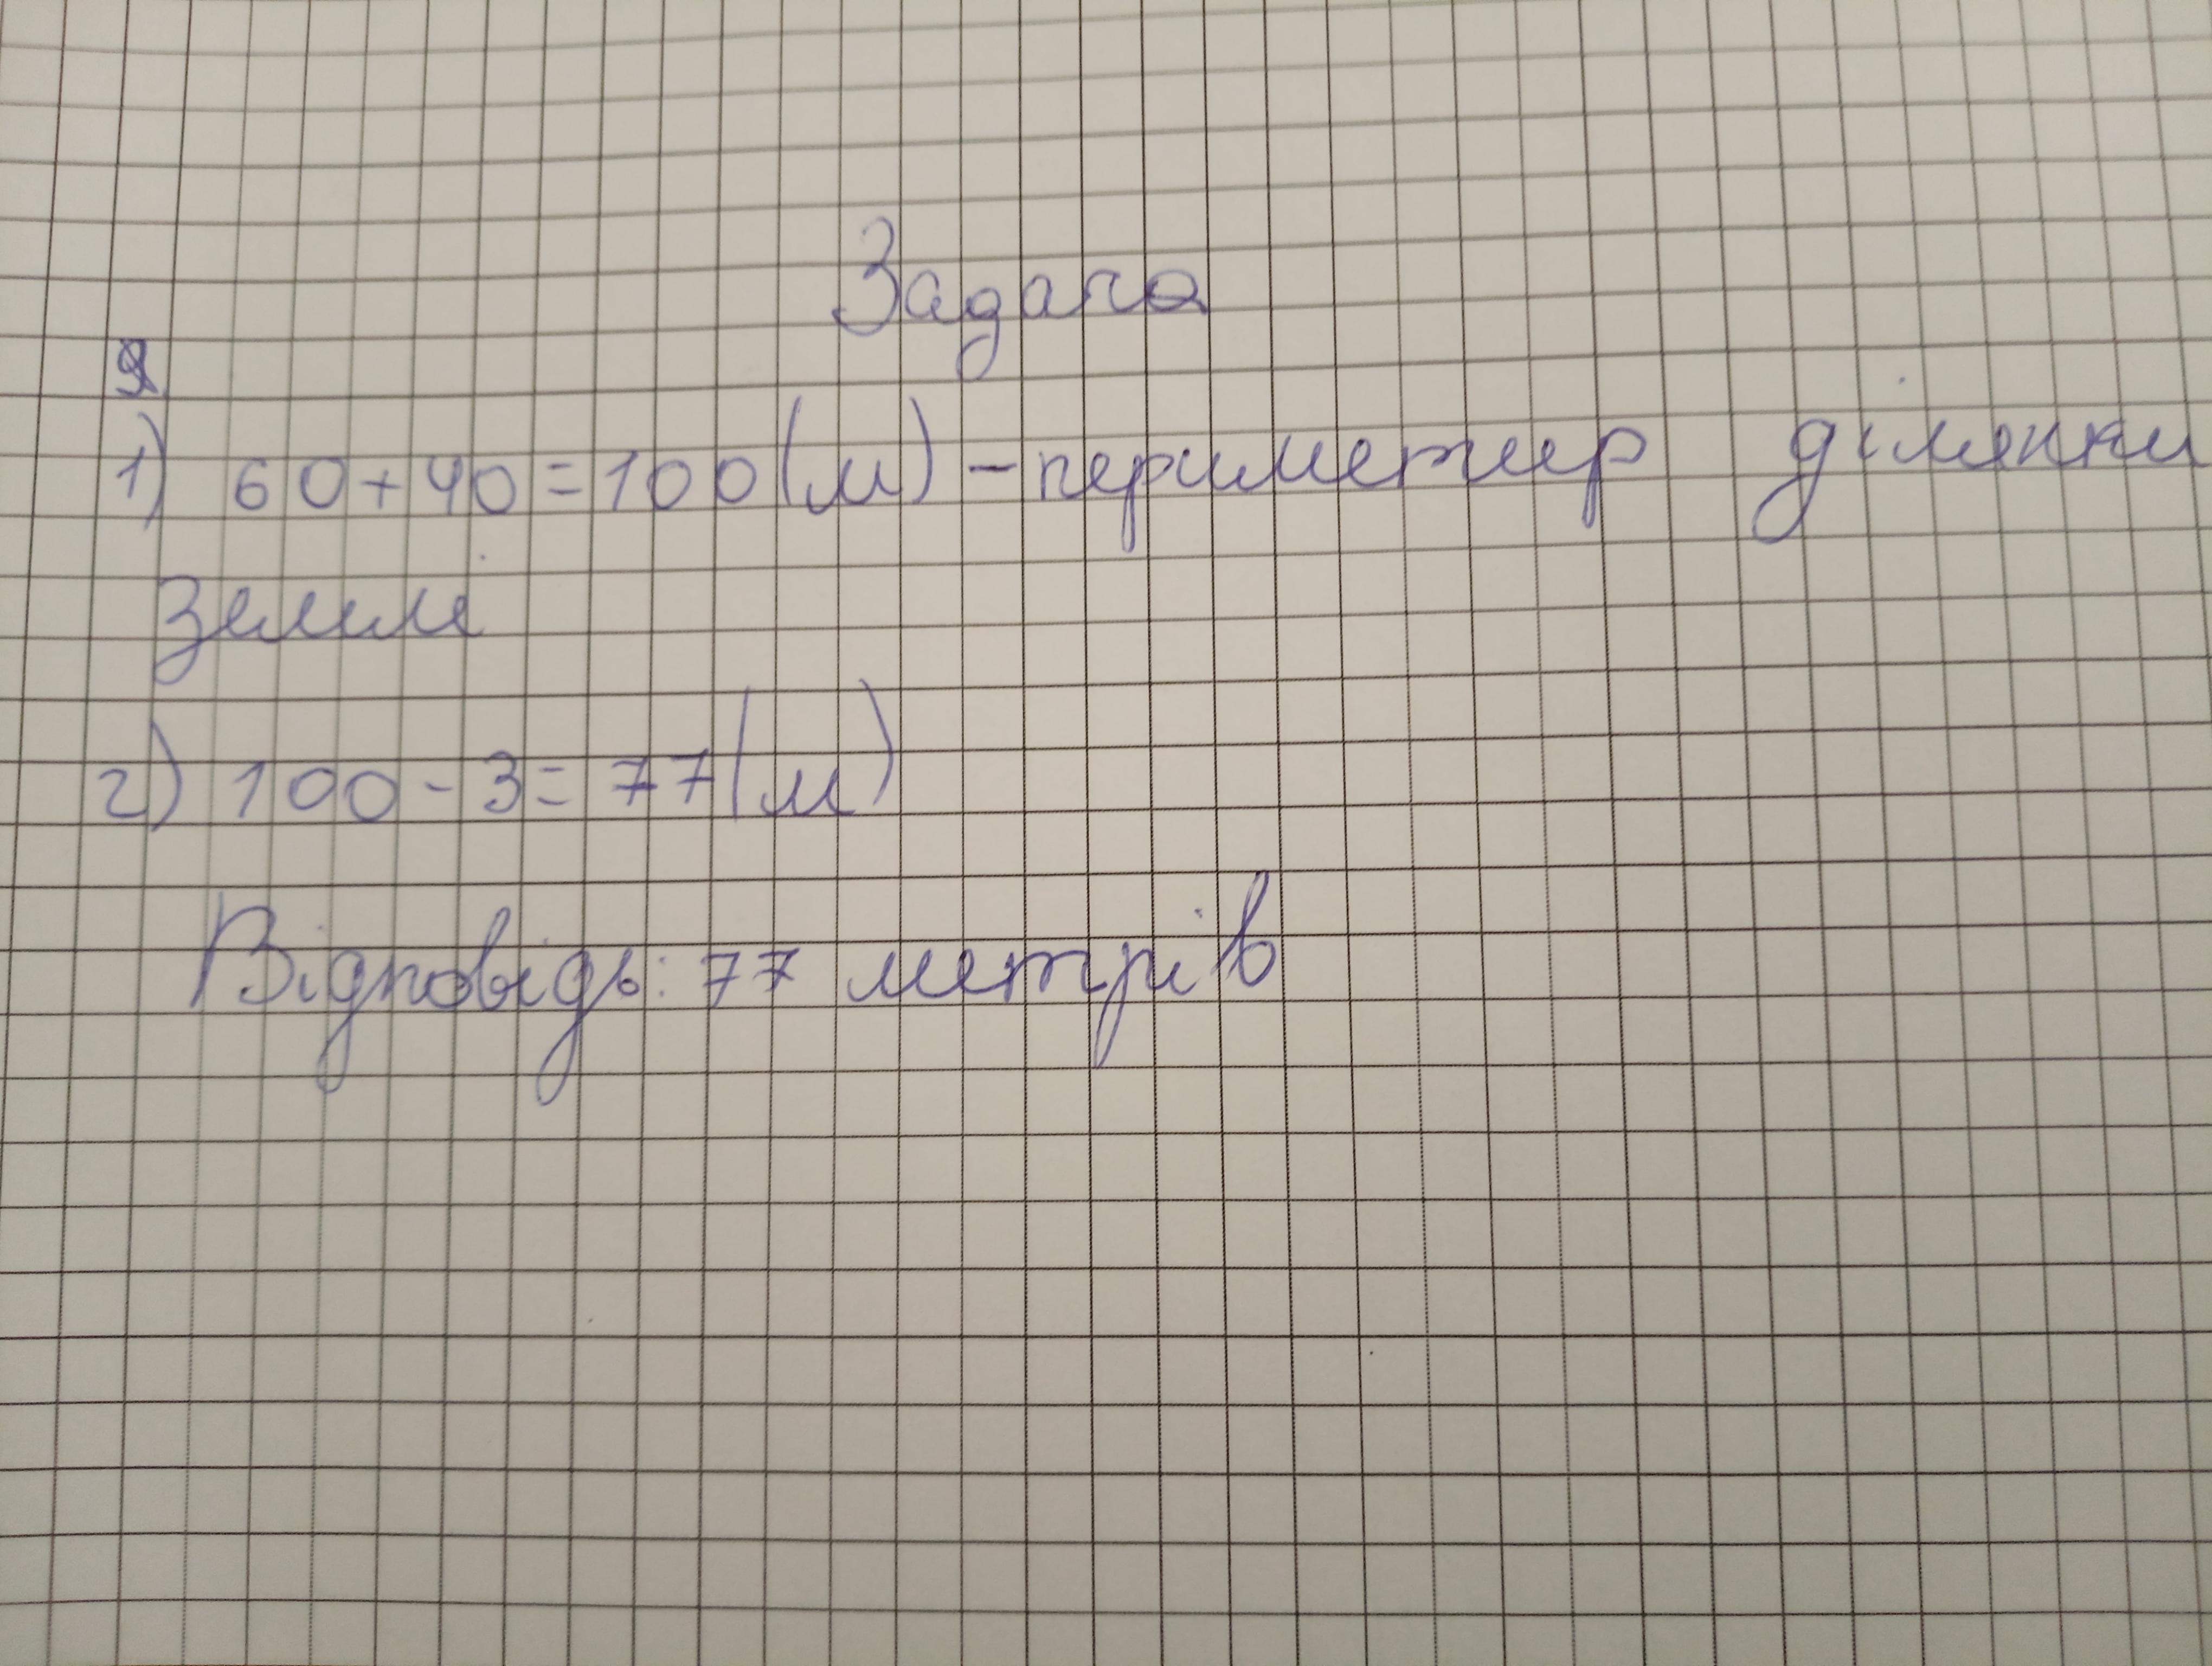 Задача
1) 60+40=100(м) - периметир ділянки
землі
2) 100-3=77(м)
Відповідь: 77 метрів